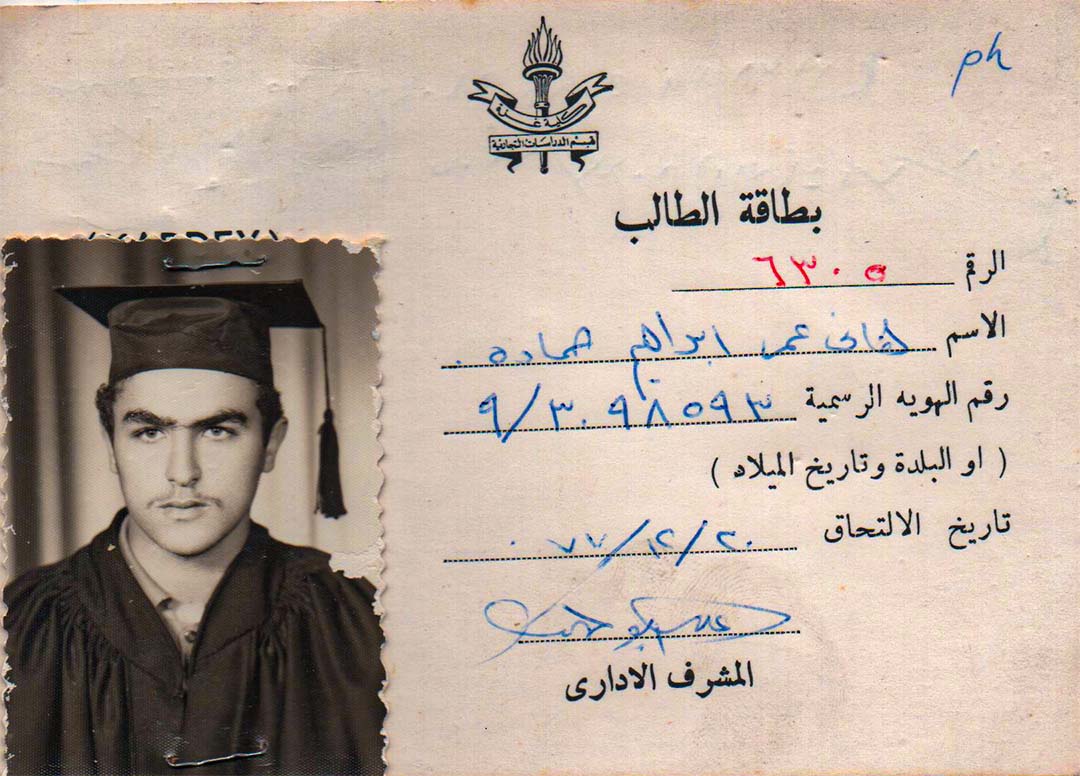 ph
كلية غزة
قسم الدراسات التجارية
بطاقة الطالب
الرقم ٦٣٠٥
الاسم هانى عمر ابراهيم حماده
رقم الهويه الرسمية ٩/٣٠٩٨٥٩٣
( او البلدة وتاريخ الميلاد )
تاريخ الالتحاق ٢٠/١٢/٧٧
المشرف الادارى